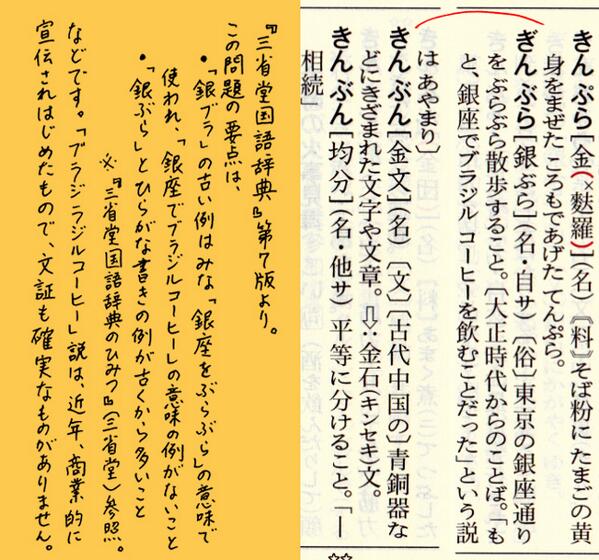 きんぷら［金（×麩羅）］（名）〘料〙そば粉に たまごの黄
身をまぜた ころもであげた てんぷら。
ぎんぶら［銀ぶら］（名・自サ）〔俗〕東京の銀座通り
を ぶらぶら散歩すること。〔大正時代からのことば。「も
と、銀座でブラジルコーヒーを飲むことだった」という説
は あやまり〕
きんぶん［金文］（名）〔文〕〔古代中国の〕青銅器な
どにきざまれた文字や文章。⇩：金石（キンセキ）文。
きんぶん［均分］（名・他サ）平等に分けること。「―
相続」
『三省堂国語辞典』第7版より。
この問題の要点は、
・「銀ブラ」の古い例はみな「銀座をぶらぶら」の意味で
使われ、「銀座でブラジルコーヒー」の意味の例がないこと
・「銀ぶら」とひらがな書きの例が古くから多いこと
※『三省堂国語辞典のひみつ』（三省堂）参照。
などです。「ブラジルコーヒー」説は、近年、商業的に
宣伝されはじめたもので、文証も確実なものがありません。